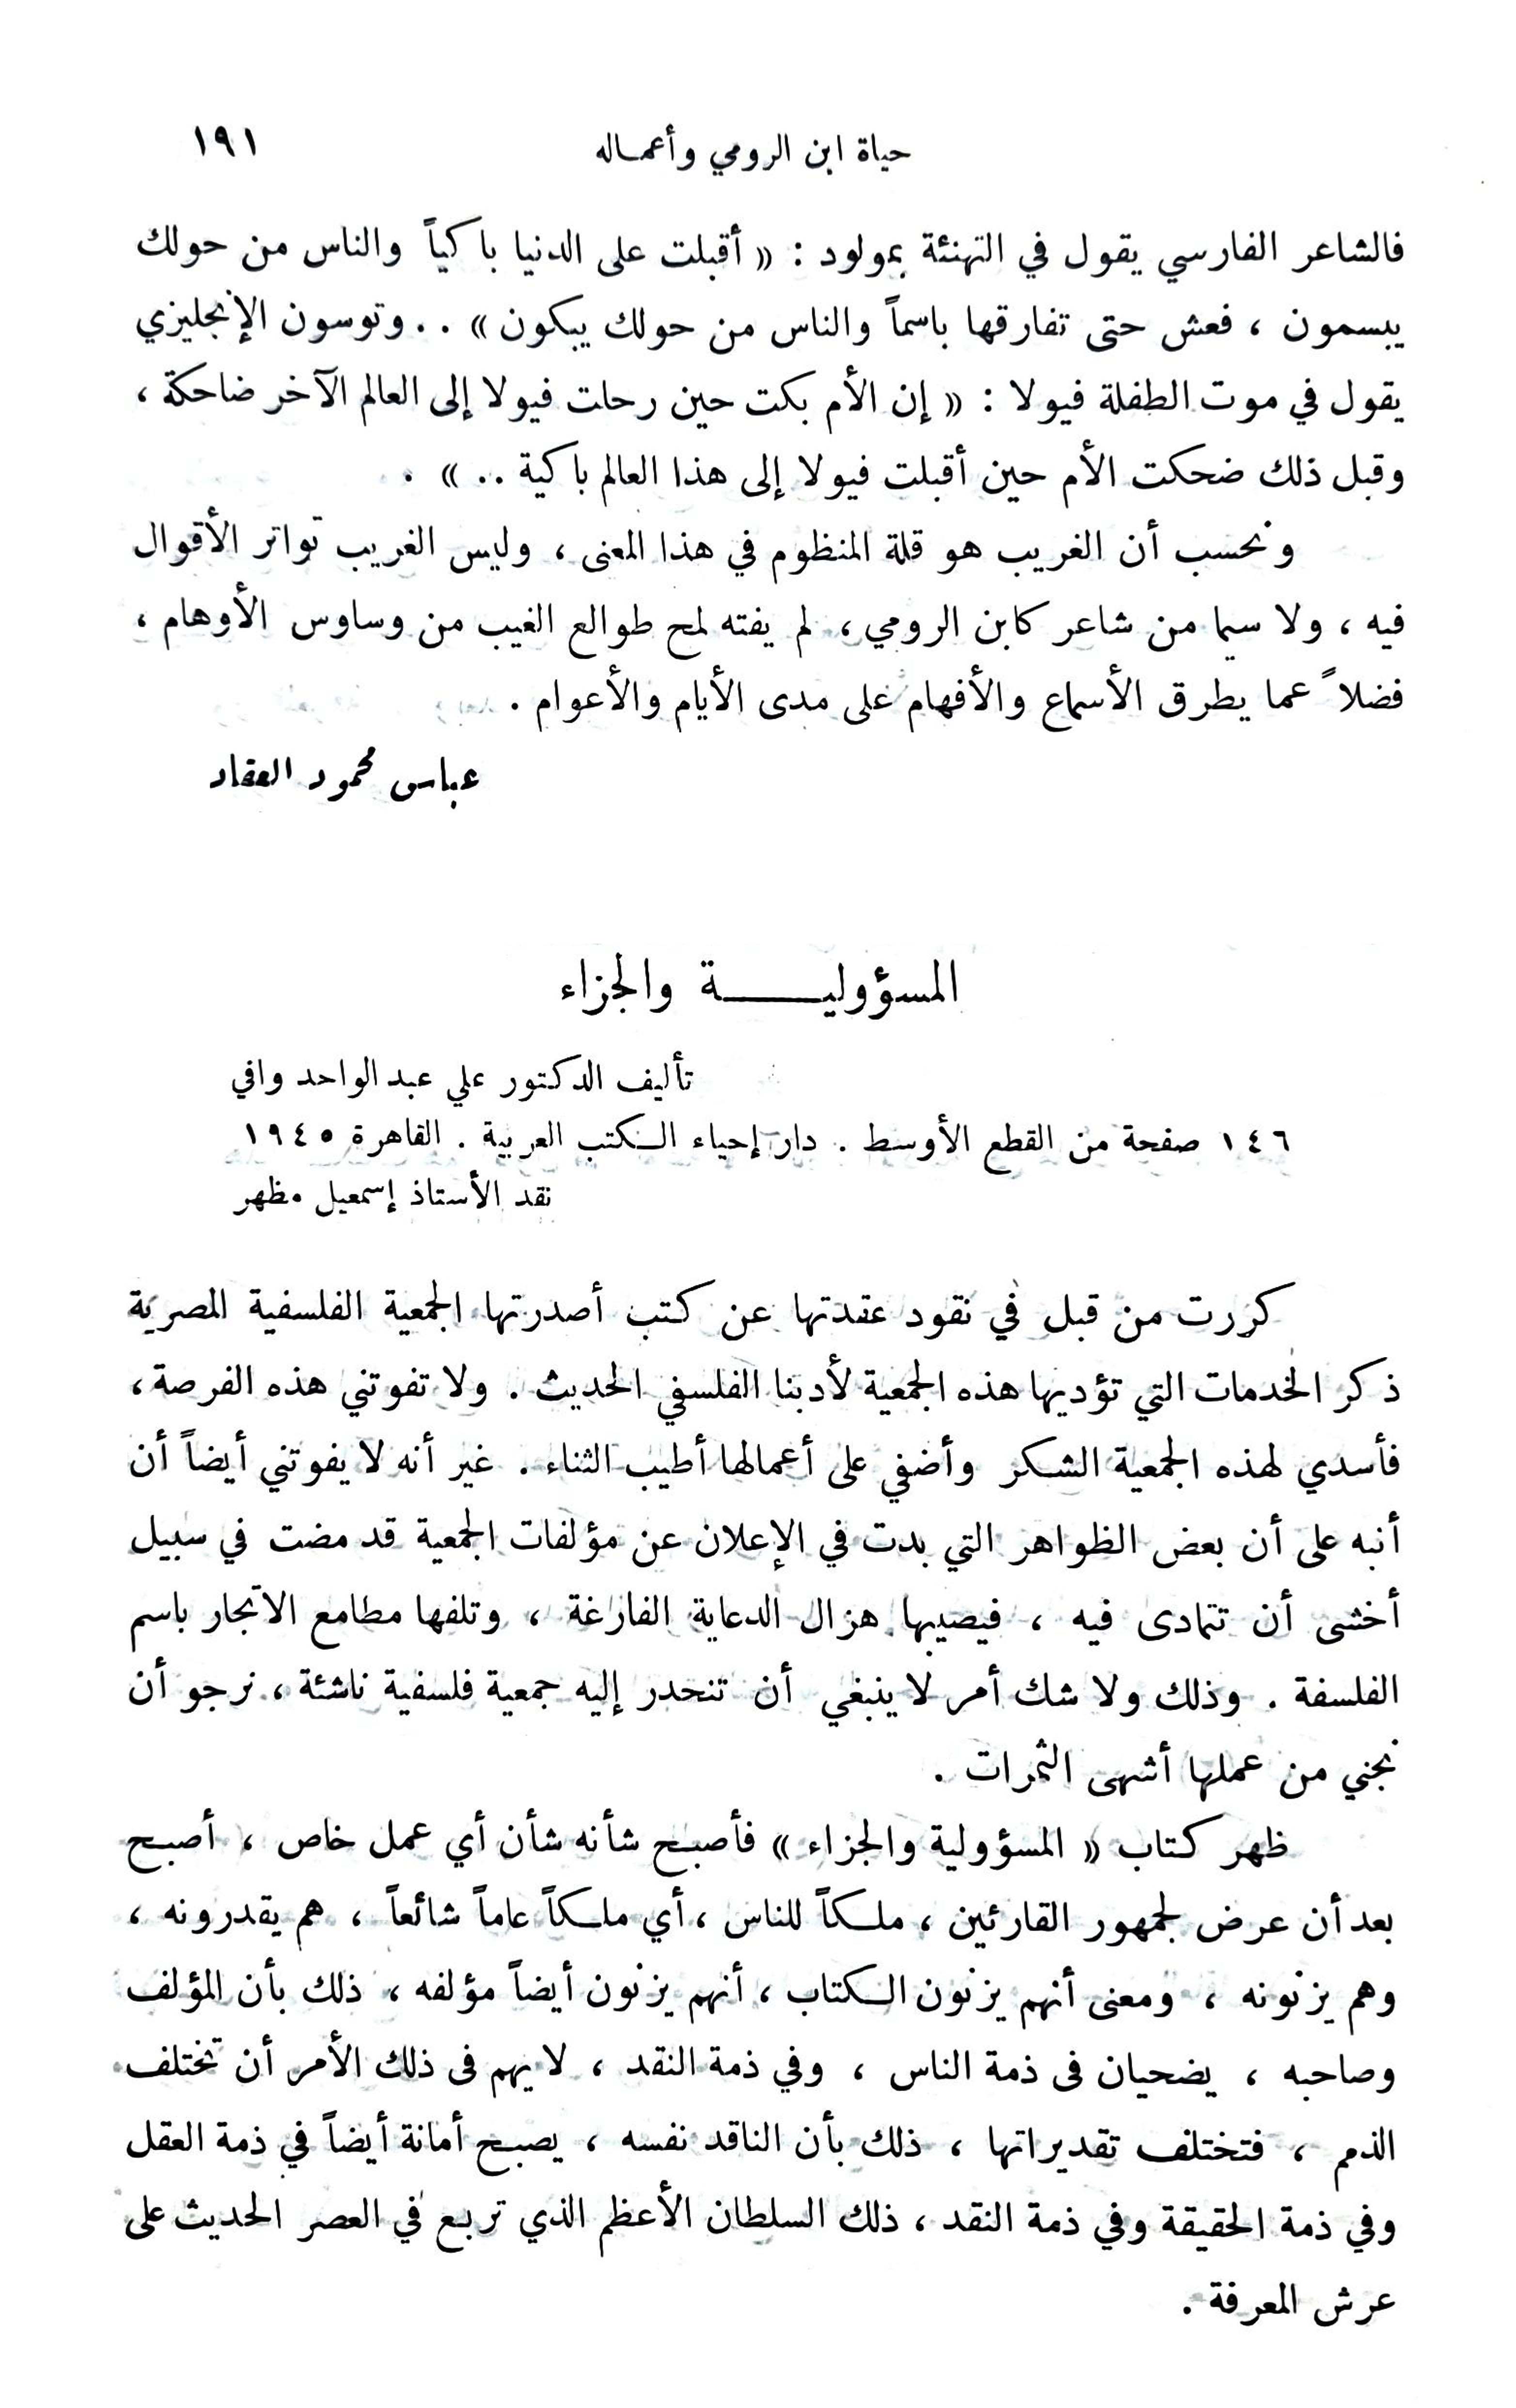 حياة ابن الرومي وأعماله ١٩١
فالشاعر الفارسي يقول في التهنئة بمولود : « أقبلت على الدنيا باكياً والناس من حولك
يبسمون ، فعش حتى تفارقها باسماً والناس من حولك يبكون » . . وتوسون الإنجليزي
يقول في موت الطفلة فيولا : « إن الأم بكت حين رحلت فيولا إلى العالم الآخر ضاحكة ،
وقبل ذلك ضحكت الأم حين أقبلت فيولا إلى هذا العالم باكية .. » .
ونحسب أن الغريب هو قلة المنظوم في هذا المعنى ، وليس الغريب تواتر الأقوال
فيه ، ولا سيما من شاعر كابن الرومي ، لم يفته لمح طوالع الغيب من وساوس الأوهام ،
فضلاً عما يطرق الأسماع والأفهام على مدى الأيام والأعوام .
عباس محمود العقاد
المسؤولية والجزاء
تأليف الدكتور علي عبد الواحد وافي
١٤٦ صفحة من القطع الأوسط . دار إحياء الكتب العربية . القاهرة ١٩٤٥
نقد الأستاذ إسمعيل مظهر
كررت من قبل في نقود عقدتها عن كتب أصدرتها الجمعية الفلسفية المصرية
ذكر الخدمات التي تؤديها هذه الجمعية لأدبنا الفلسفي الحديث . ولا تفوتني هذه الفرصة ،
فأسدي لهذه الجمعية الشكر وأضفي على أعمالها أطيب الثناء . غير أنه لا يفوتني أيضاً أن
أنبه على أن بعض الظواهر التي بدت في الإعلان عن مؤلفات الجمعية قد مضت في سبيل
أخشى أن تتمادى فيه ، فيصيبها هزال الدعاية الفارغة ، وتلفها مطامع الاتجار باسم
الفلسفة . وذلك ولا شك أمر لا ينبغي أن تنحدر إليه جمعية فلسفية ناشئة ، نرجو أن
نجني من عملها أشهى الثمرات .
ظهر كتاب « المسؤولية والجزاء » فأصبح شأنه شأن أي عمل خاص ، أصبح
بعد أن عرض لجمهور القارئين ، ملكاً للناس ، أي ملكاً عاماً شائعاً ، هم يقدرونه ،
وهم يزنونه ، ومعنى أنهم يزنون الكتاب ، أنهم يزنون أيضاً مؤلفه ، ذلك بأن المؤلف
وصاحبه ، يضحيان فى ذمة الناس ، وفي ذمة النقد ، لا يهم فى ذلك الأمر أن تختلف
الذمم ، فتختلف تقديراتها ، ذلك بأن الناقد نفسه ، يصبح أمانة أيضاً في ذمة العقل
وفي ذمة الحقيقة وفي ذمة النقد ، ذلك السلطان الأعظم الذي تربع في العصر الحديث على
عرش المعرفة .